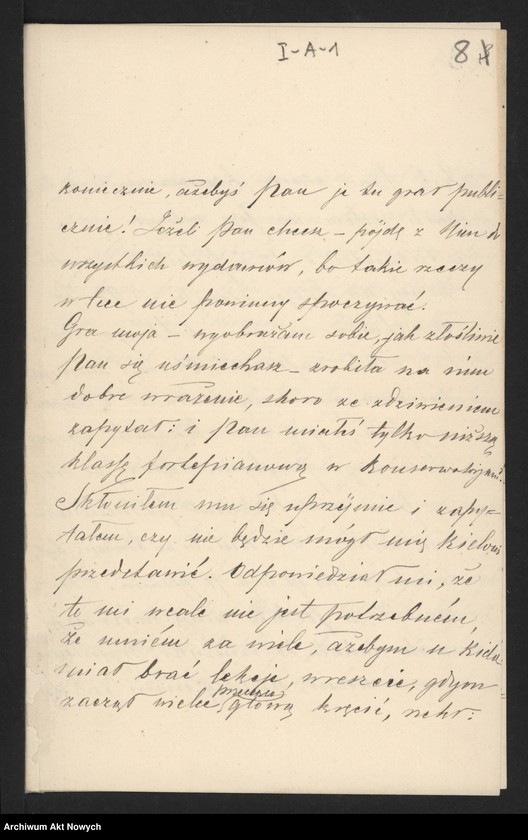 I-A-1
8
koniecznie, ażebyś Pan je tu grał publi=
cznie! Jeżeli Pan chcesz – pójdę z Nim do
wszystkich wydawców, bo takie rzeczy
w tece nie powinny spoczywać.
Gra moja – wyobrażam sobie, jak złośliwie
Pan się uśmiechasz – zrobiła na nim
dobre wrażenie, skoro ze zdziwieniem
zapytał: i Pan miałeś tylko niższą
klassę fortepianową w Konserwatoryum?
Skłoniłem mu się uprzejmie i zapy=
tałem, czy nie będzie mógł mię Kielowi
przedstawić. Odpowiedział mi, że
to mi wcale nie jest potrzebném,
że umiém za wiele, ażebym u Kiela
miał brać lekcje, wreszcie, gdym
zaczął wielce głową kręcić, rzekł:
Archiwum Akt Nowych